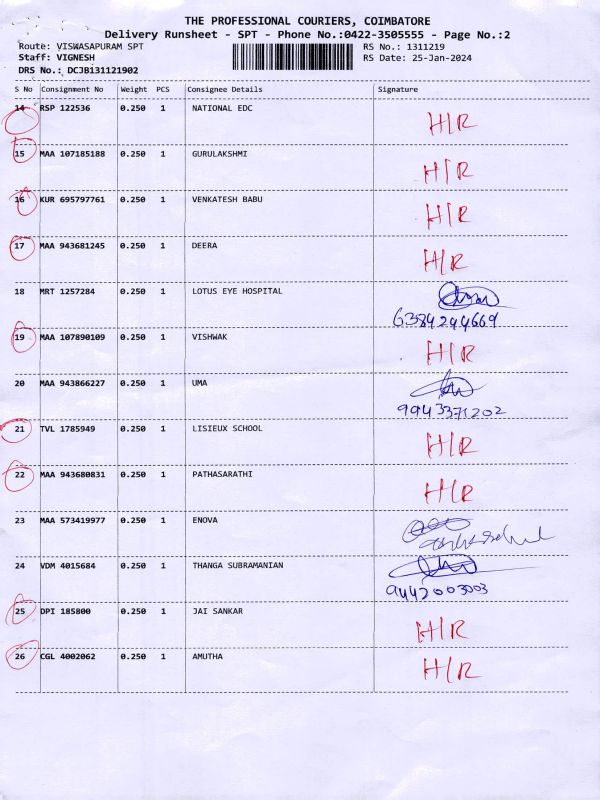 THE PROFESSIONAL COURIERS, COIMBATORE
Delivery Runsheet - SPT - Phone No.:0422-3505555 - Page No.:2
Route: VISWASAPURAM SPT RS No.: 1311219
Staff: VIGNESH RS Date: 25-Jan-2024
DRS No.: DCJB131121902
S No Consignment No Weight PCS Consignee Details Signature
14 RSP 122536 0.250 1 NATIONAL EDC H/R
15 MAA 107185188 0.250 1 GURULAKSHMI H/R
16 KUR 695797761 0.250 1 VENKATESH BABU H/R
17 MAA 943681245 0.250 1 DEERA H/R
18 MRT 1257284 0.250 1 LOTUS EYE HOSPITAL
6384244669
19 MAA 107890109 0.250 1 VISHWAK H/R
20 MAA 943866227 0.250 1 UMA
9943371202
21 TVL 1785949 0.250 1 LISIEUX SCHOOL H/R
22 MAA 943680831 0.250 1 PATHASARATHI H/R
23 MAA 573419977 0.250 1 ENOVA
24 VDM 4015684 0.250 1 THANGA SUBRAMANIAN
9442003003
25 DPI 185800 0.250 1 JAI SANKAR H/R
26 CGL 4002062 0.250 1 AMUTHA H/R